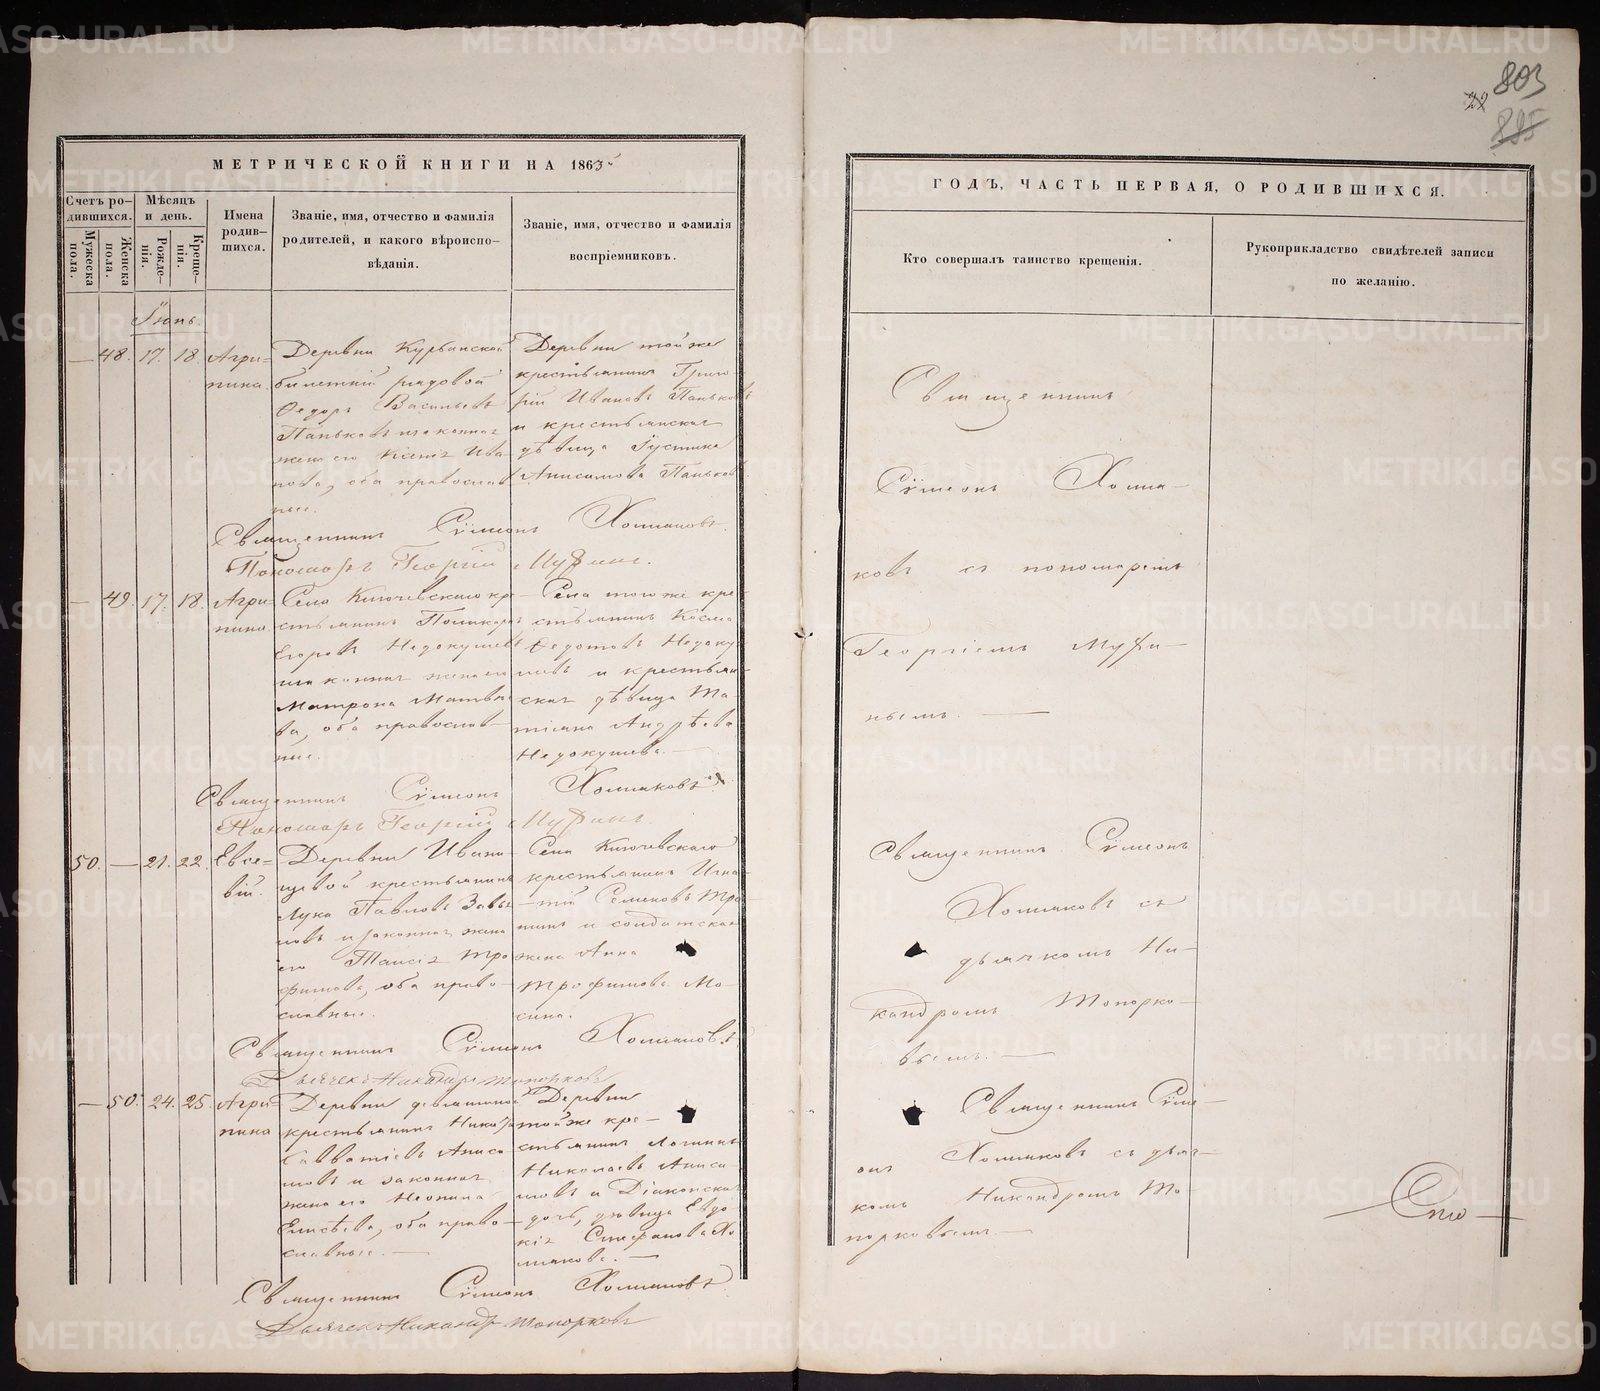 803
28
895
МЕТРИЧЕСКОЙ КНИГИ НА 1865
ГОДЪ, ЧАСТЬ ПЕРВАЯ, О РОДИВШИХСЯ.
Счетъ ро-
дившихся.
Мужеска
пола.
Женска
пола.
Мѣсяцъ
и день.
Рожде-
нія.
Креще-
нія.
Имена
родив-
шихся.
Званіе, имя, отчество и фамилія
родителей, и какого вѣроиспо-
вѣданія.
Званіе, имя, отчество и фамилія
воспріемниковъ.
Кто совершалъ таинство крещенія.
Рукоприкладство свидѣтелей записи
по желанію.
Іюнь.
— 48. 17. 18.
Агри-
пина.
Деревни
билетный рядовой
Федоръ Васильевъ
Паньковъ и законная
жена его Ксенія Ива
нова, оба православ
ные.
Деревни той же
крестьянинъ Григо
рій Ивановъ Паньковъ
и крестьянская
дѣвица Іустина
Анисимова Панькова
Священникъ Сѵмеонъ Холмаковъ.
Пономарь Георгій Мухинъ.
Священникъ
Сѵмеонъ Холма-
ковъ съ пономаремъ
Георгіемъ Мухи-
нымъ.
— 49. 17. 18.
Агри-
пина.
Села Ключевскаго кре-
стьянинъ Поликарпъ
Егоровъ
и законная жена его
Матрона Матвѣе
ва, оба православ-
ные.
Села того же кре
стьянинъ Косма
Федотовъ
и крестьян
ская дѣвица Та
тіана Андрѣева
Священникъ Сѵмеонъ Холмаковъ
Пономарь Георгій Мухинъ.
50. — 21. 22.
Евсе-
вій.
Деревни Ивани
щевой крестьянинъ
Лука Павловъ Завья
ловъ и законная жена
его Таисія Тро
фимова, оба право-
славные.
Села Ключевскаго
крестьянинъ Игна-
тій Семеновъ
и солдатская
жена Анна
Трофимова Мо-
сина.
Священникъ Сѵмеонъ Холмаковъ.
Дьячекъ Никандръ Топорковъ
Священникъ Сѵмеонъ
Холмаковъ съ
дьячкомъ Ни-
кандромъ Топорко-
вымъ.
— 50. 24. 25.
Агри-
пина
Деревни
крестьянинъ
Савватіевъ Аниси
мовъ и законная
жена его Неонила
Елисѣева, оба право-
славные.
Деревни
той же кре-
стьянинъ Логинъ
Николаевъ Аниси
мовъ и Діаконская
дочь, дѣвица Евдо
кія Стефанова Хо
лмакова.
Священникъ Сѵмеонъ Холмаковъ
Дьячекъ Никандръ Топорковъ
Священникъ Сѵме-
онъ Холмаковъ съ дьяч-
комъ Никандромъ То-
порковымъ.